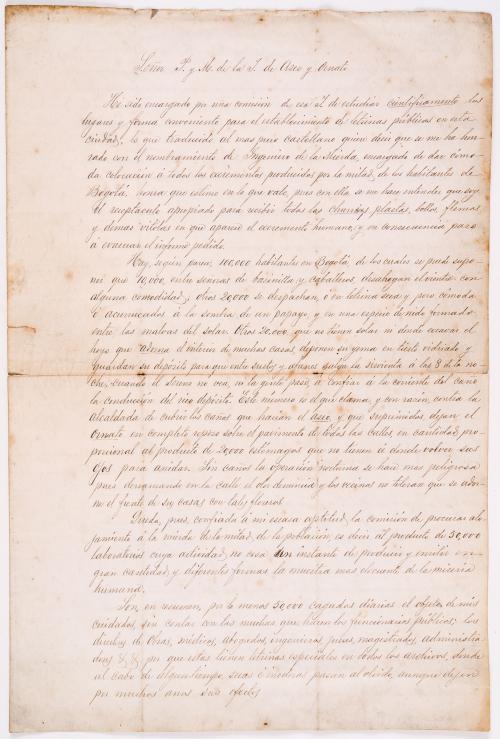 Señor P. y M. de la J. de Aseo y Ornato
He sido encargado por una comisión de esa J. de estudiar científicamente los
lugares y forma conveniente para el establecimiento de letrinas públicas en esta
ciudad, lo que traducido al mas puro castellano quiere decir que se me ha hon-
rado con el nombramiento de Ingeniero de la Mierda, encargado de dar cómo-
da colocación á todos los excrementos producidos por la mitad de los habitantes de
Bogotá: honra que estimo en lo que vale, pues con ella se me hace entender que soy
el receptáculo apropiado para recibir todas las plastas, bollos, flemas
y demas vitolas en que aparece el excremento humano; y en consecuencia paso
á evacuar el informe pedido.
Hay, según parece, 100,000 habitantes en Bogotá de los cuales se puede supo-
ner que 10,000, entre señoras de bacinilla y caballeros, desahogan el vientre con
alguna comodidad; otros 20,000 se despachan, ó en letrina seca y pero cómoda
ó acurrucados á la sombra de un papayo, y en una especie de nido formado
entre las malvas del solar. Otros 20,000, que no tienen solar ni donde excavar el
hoyo que adorna el interior de muchas casas, deponen su yema en tiesto vidriado y
guardan su depósito para que entre sustos y afanes salga la sirvienta á las 8 de la no-
che, cuando el sereno no vea, ni la gente pase, á confiar á la corriente del caño
la conducción del rico depósito. Este número es el que clama, y con razón, contra la
alcaldada de cubrir los caños que hacían el aseo, y que suprimidos dejan el
Ornato en completo reposo sobre el pavimento de todas las calles, en cantidad pro-
porcional al producto de 20,000 estómagos que no tienen á donde volver sus
ojos para anidar. Sin caños la operación nocturna se hace mas peligrosa
pues derramando en la calle el olor denuncia y los vecinos no toleran que se ador-
ne el frente de sus casas con tales floreros
Queda, pues, confiada á mi escasa aptitud, la comisión de procurar alo-
jamiento á la mierda de la mitad de la población, es decir al producto de 50,000
laboratorios cuya actividad no cesa un instante de producir y emitir en
gran cantidad y diferentes formas la muestra mas elocuente de la miseria
humana.
Son, en resumen, por lo menos 50,000 cagadas diarias el objeto de mis
cuidados, sin contar con las muchas que hacen los funcionarios públicos; los
directores de Obras, médicos, abogados, ingenieros, jueces, magistrados, administra
dores &, &, por que estos tienen letrinas especiales en todos los archivos, donde
al cabo de algun tiempo, secas é inodoras pasan al olvido, aunque dejan
por muchos años sus efectos